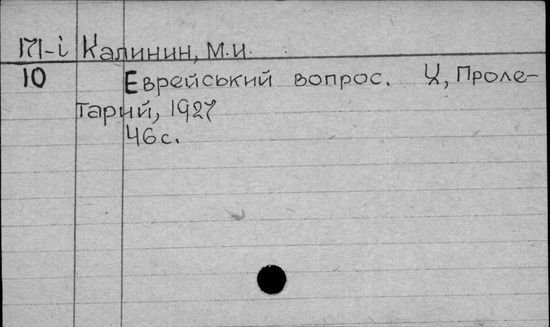 171-i Калинин, М.И.
10 Еврейський вопрос. Х, Проле-
тарий, 1927
46 с.